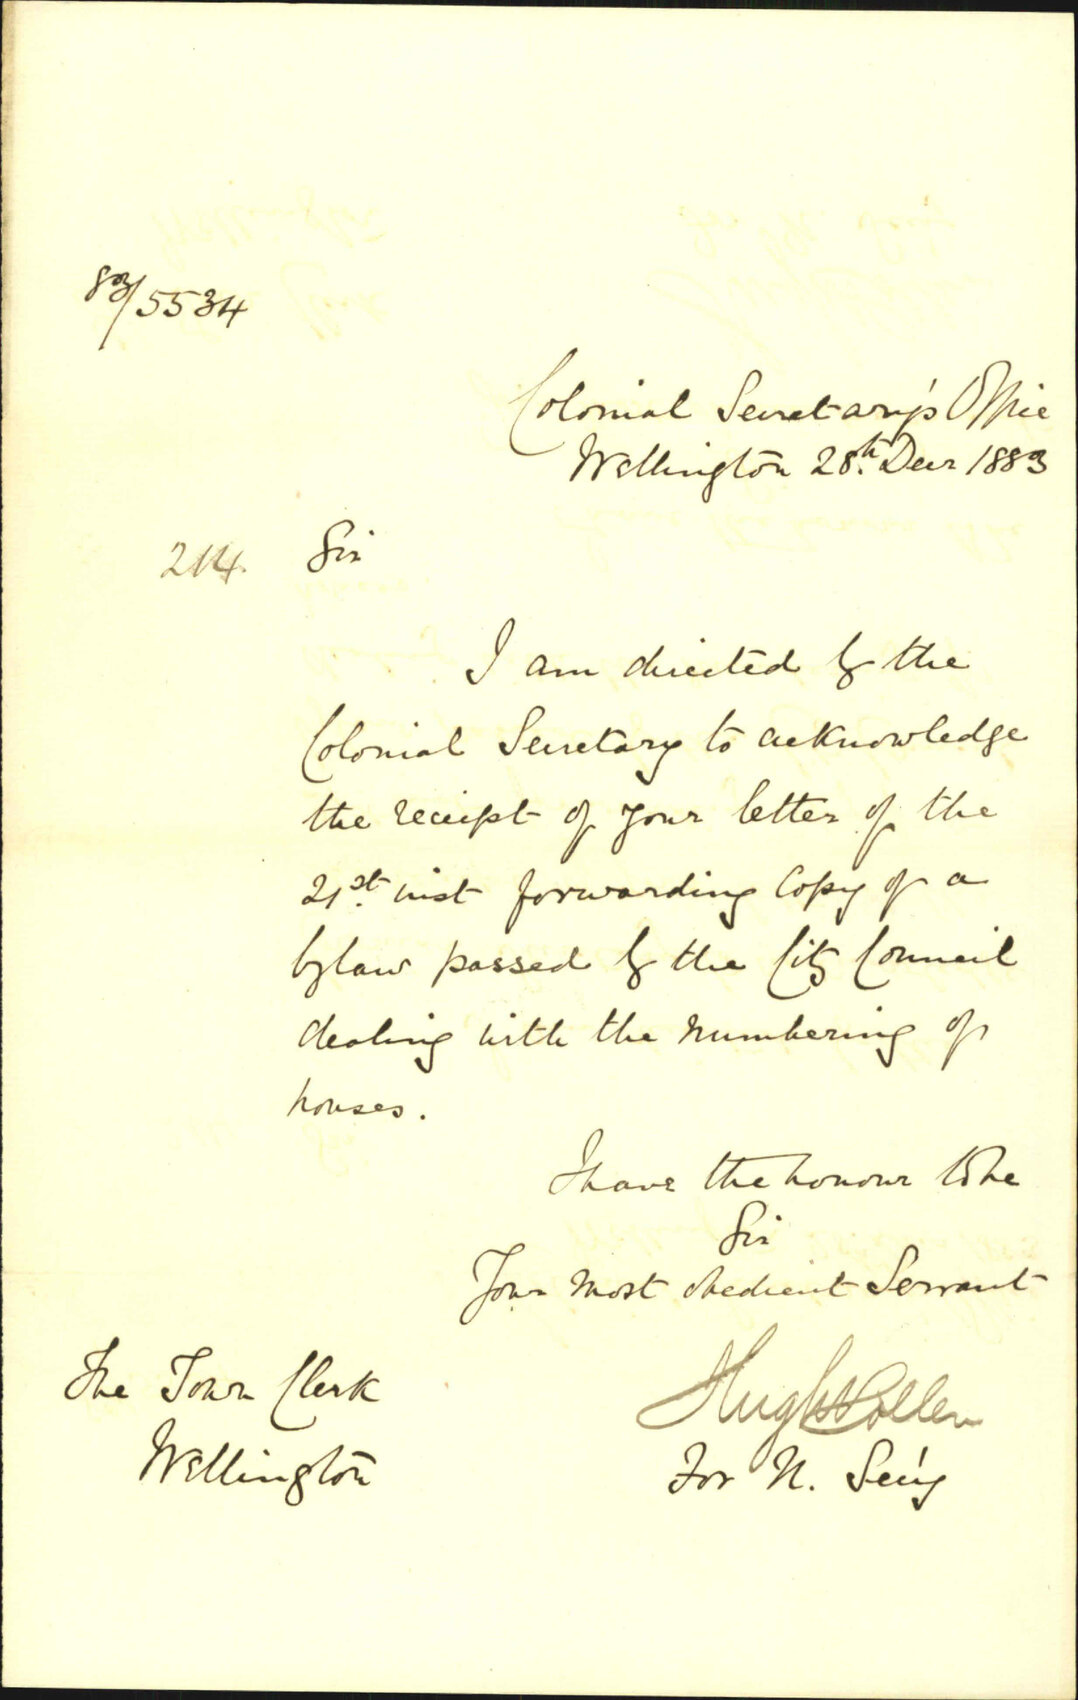 83/5534
Colonial Secretary's Office
Wellington 28th. Decr 1883
214. Sir
I am directed by the
Colonial Secretary to acknowledge
the receipt of your letter of the
21st. inst forwarding Copy of a
bylaw passed by the City Council
dealing with the numbering of
houses.
I have the honour to be
Sir
Your most obedient Servant
Hugh Pollen
For U. Sec'y
The Town Clerk
Wellington